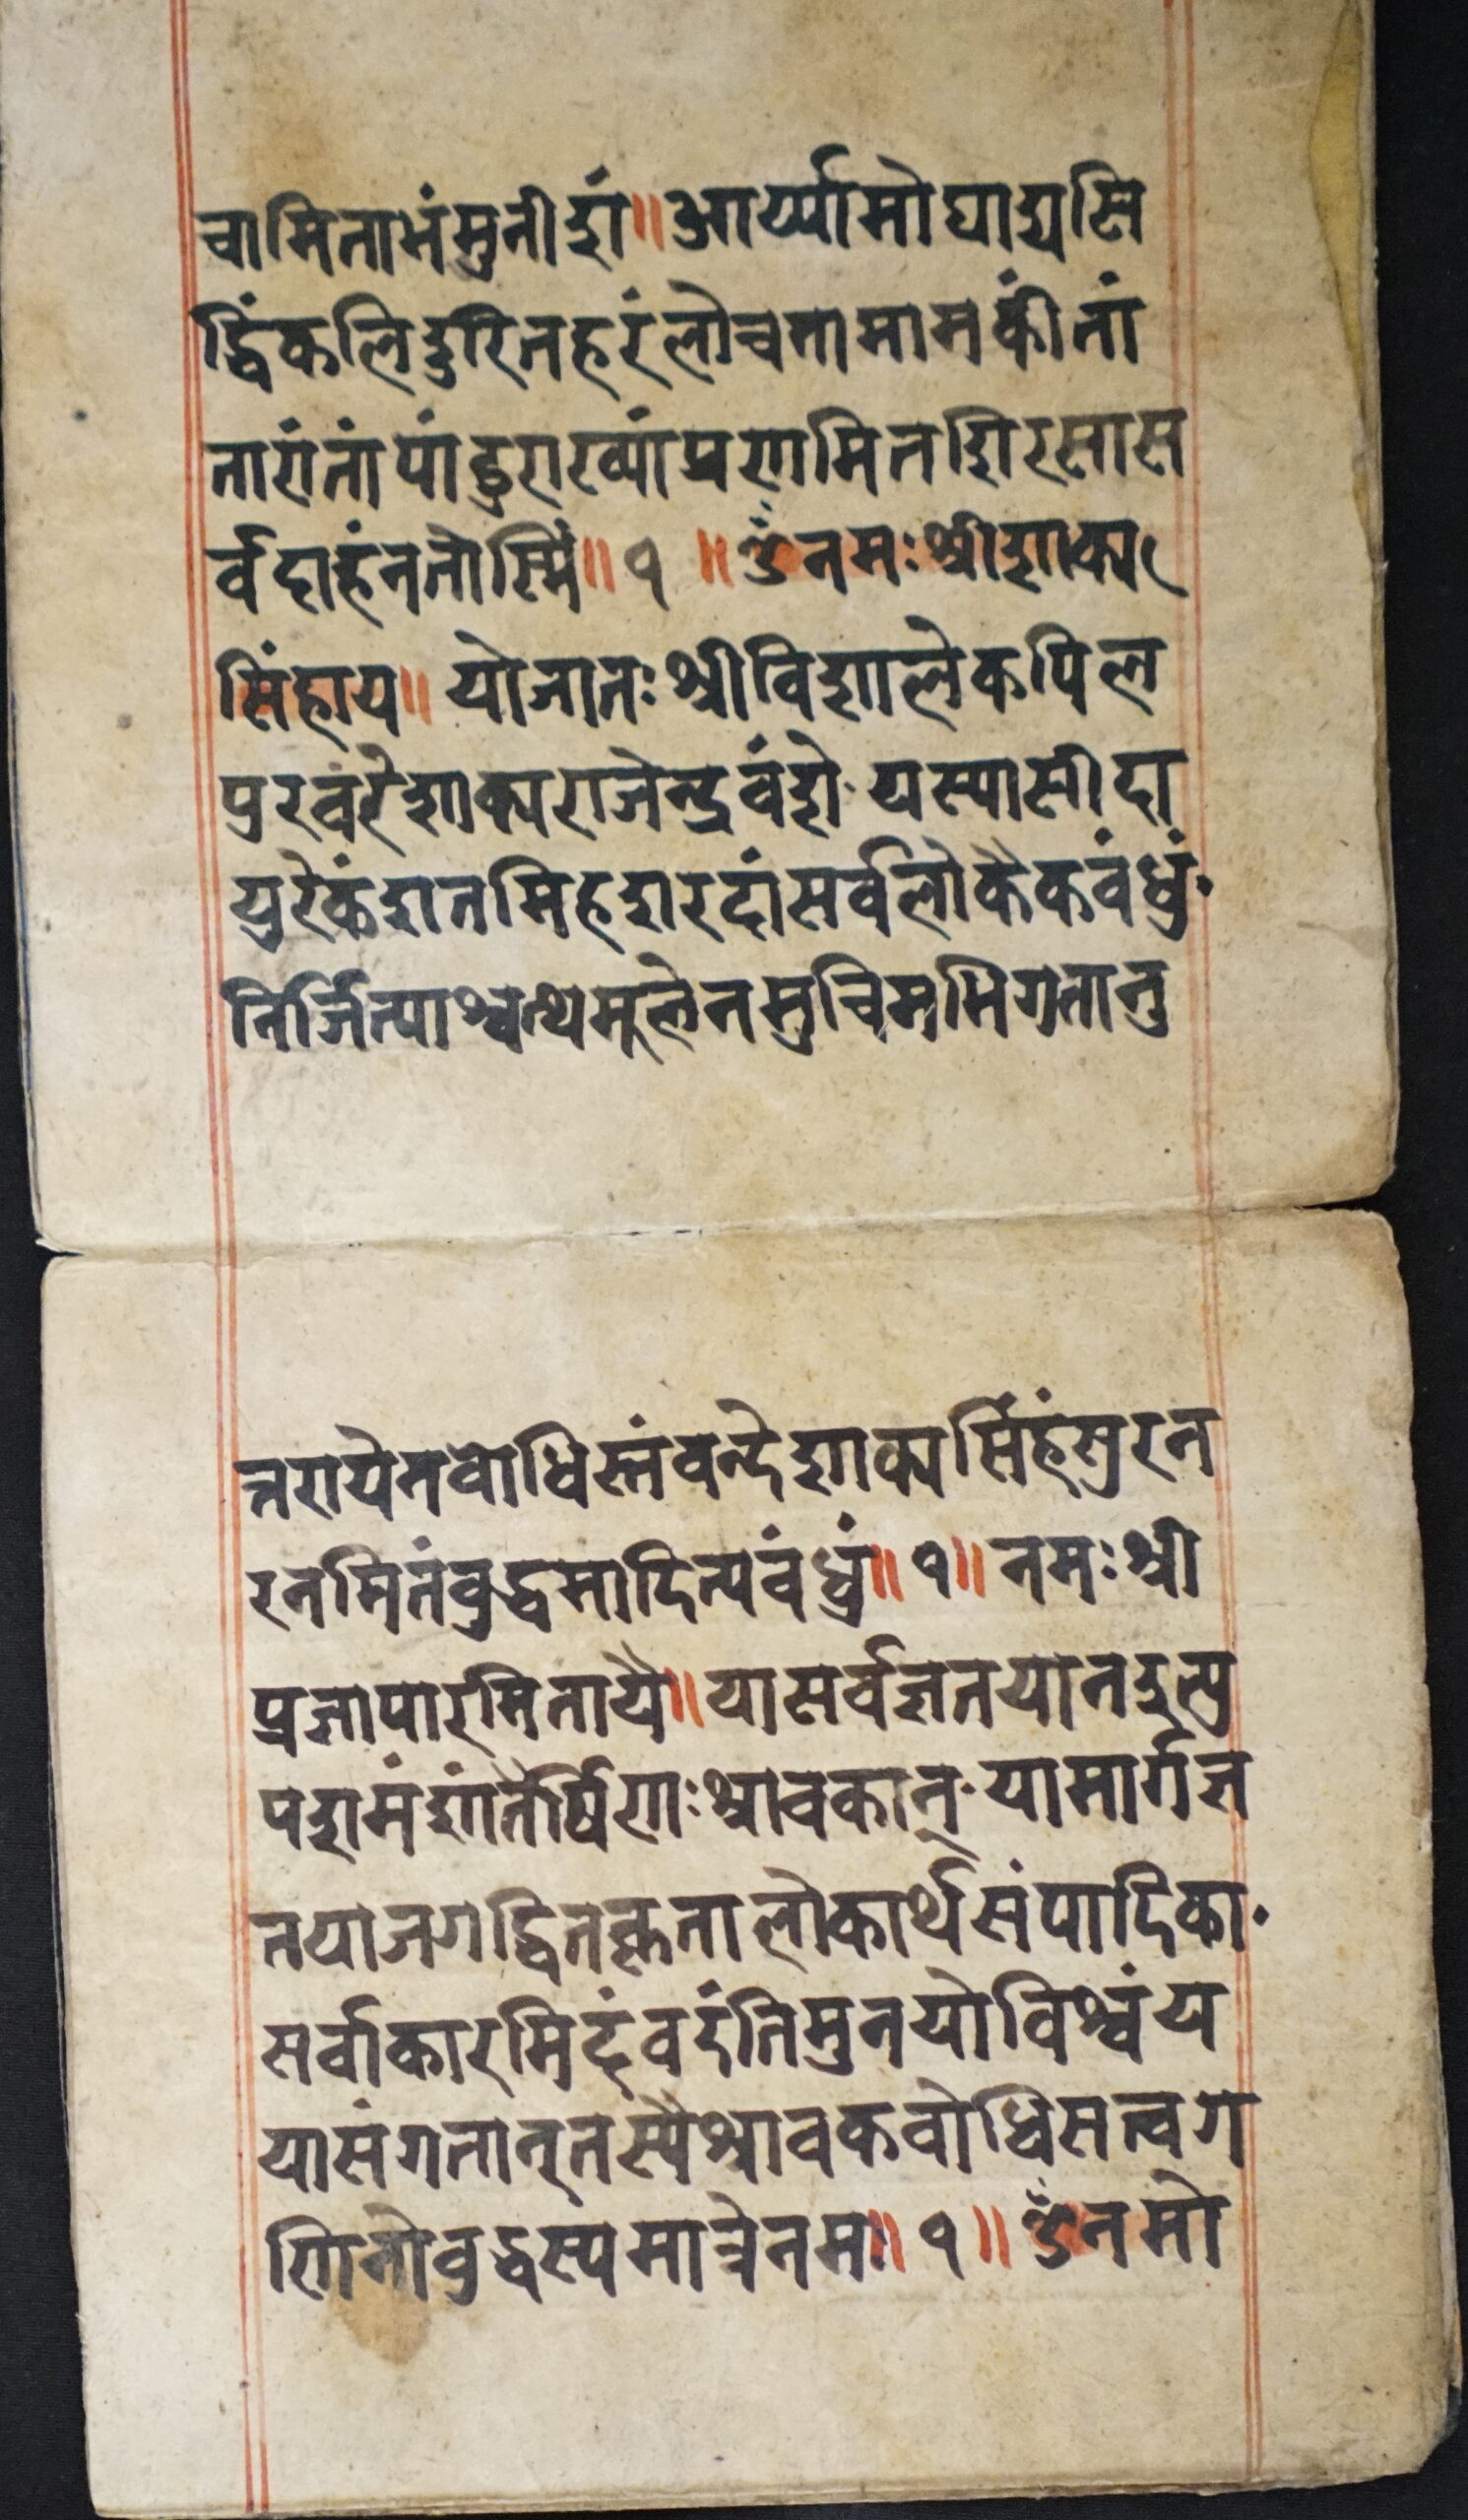 चामिताभंमुनीशं॥आर्य्यामोघाद्यसि
द्धिंकलिदुरितहरंलोचनामामकींतां
तारांतांपांडुराख्यांप्रणमितशिरसास
र्वदाहंनतोस्मिं॥१॥ॐनमःश्रीशाक्य
सिंहाय॥योजातःश्रीविशालेकपिल
प्ररवरेशाक्यराजेन्द्रवंशे·यस्यासीदा
युरेकंशतमिहशरदांसर्वलोकैकवंधुं·
निर्जित्याश्वत्थमूलेनमुचिमभिगतानु
त्तरायेनवोधिस्तंवन्देशाक्यसिंहंसुरन
रनमितंवुद्धमादित्यवंधुं॥१॥नमःश्री
प्रज्ञापारमितायै॥यासर्वज्ञतयानदुत्प्र
पशमंशांतैर्षिणःश्रावकान्·यामार्गज्ञ
तयाजगद्धितकृतालोकार्थसंपादिका·
सर्वाकारमिदंवदंतिमुनयोविश्वंय
यासंगतान्तस्यैश्रावकवोधिसत्वग
णिनोवुद्धस्यमात्रेनमः॥१॥ॐनमो